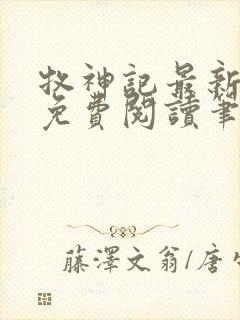 牧神記最新
免費閱讀筆
藤澤文翁/唐